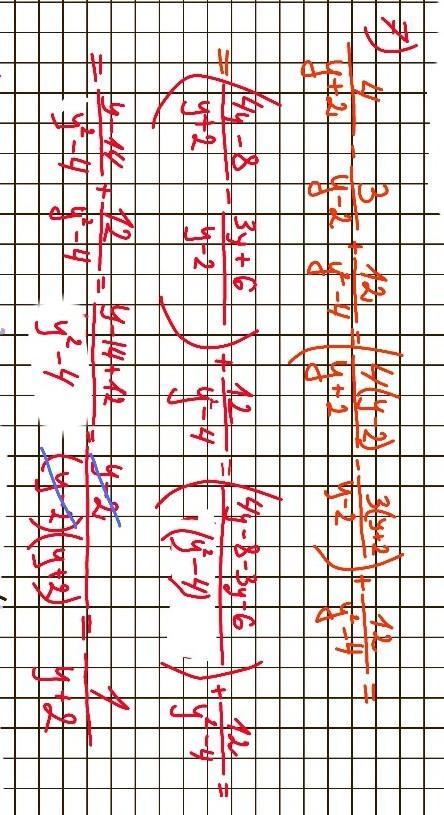 7)
4/(y+2) - 3/(y-2) + 12/(y²-4) = (4(y-2)/(y+2) - 3(y+2)/(y-2)) + 12/(y²-4) =
= (4y-8/(y+2) - 3y+6/(y-2)) + 12/(y²-4) = (4y-8-3y-6/(y²-4)) + 12/(y²-4) =
= y-14/(y²-4) + 12/(y²-4) = y-14+12/(y²-4) = y-2/((y-2)(y+2)) = 1/(y+2)